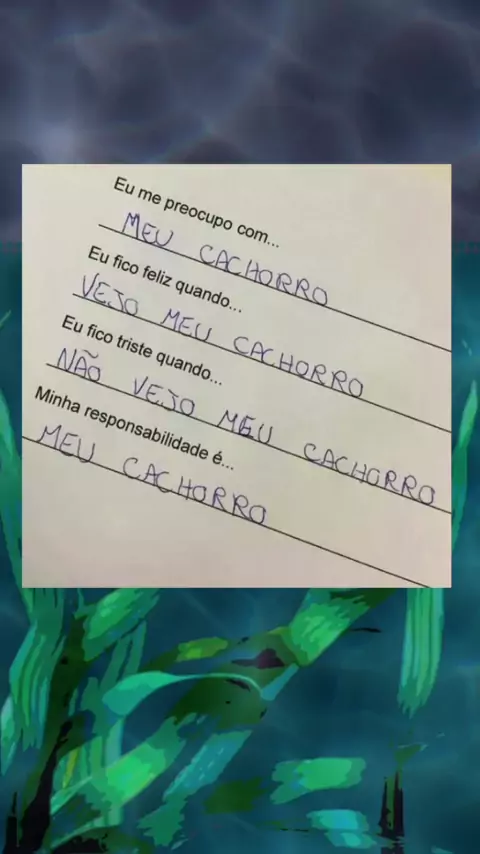 Eu me preocupo com...
MEU CACHORRO
Eu fico feliz quando...
VEJO MEU CACHORRO
Eu fico triste quando...
NÃO VEJO MEU CACHORRO
Minha responsabilidade é...
MEU CACHORRO